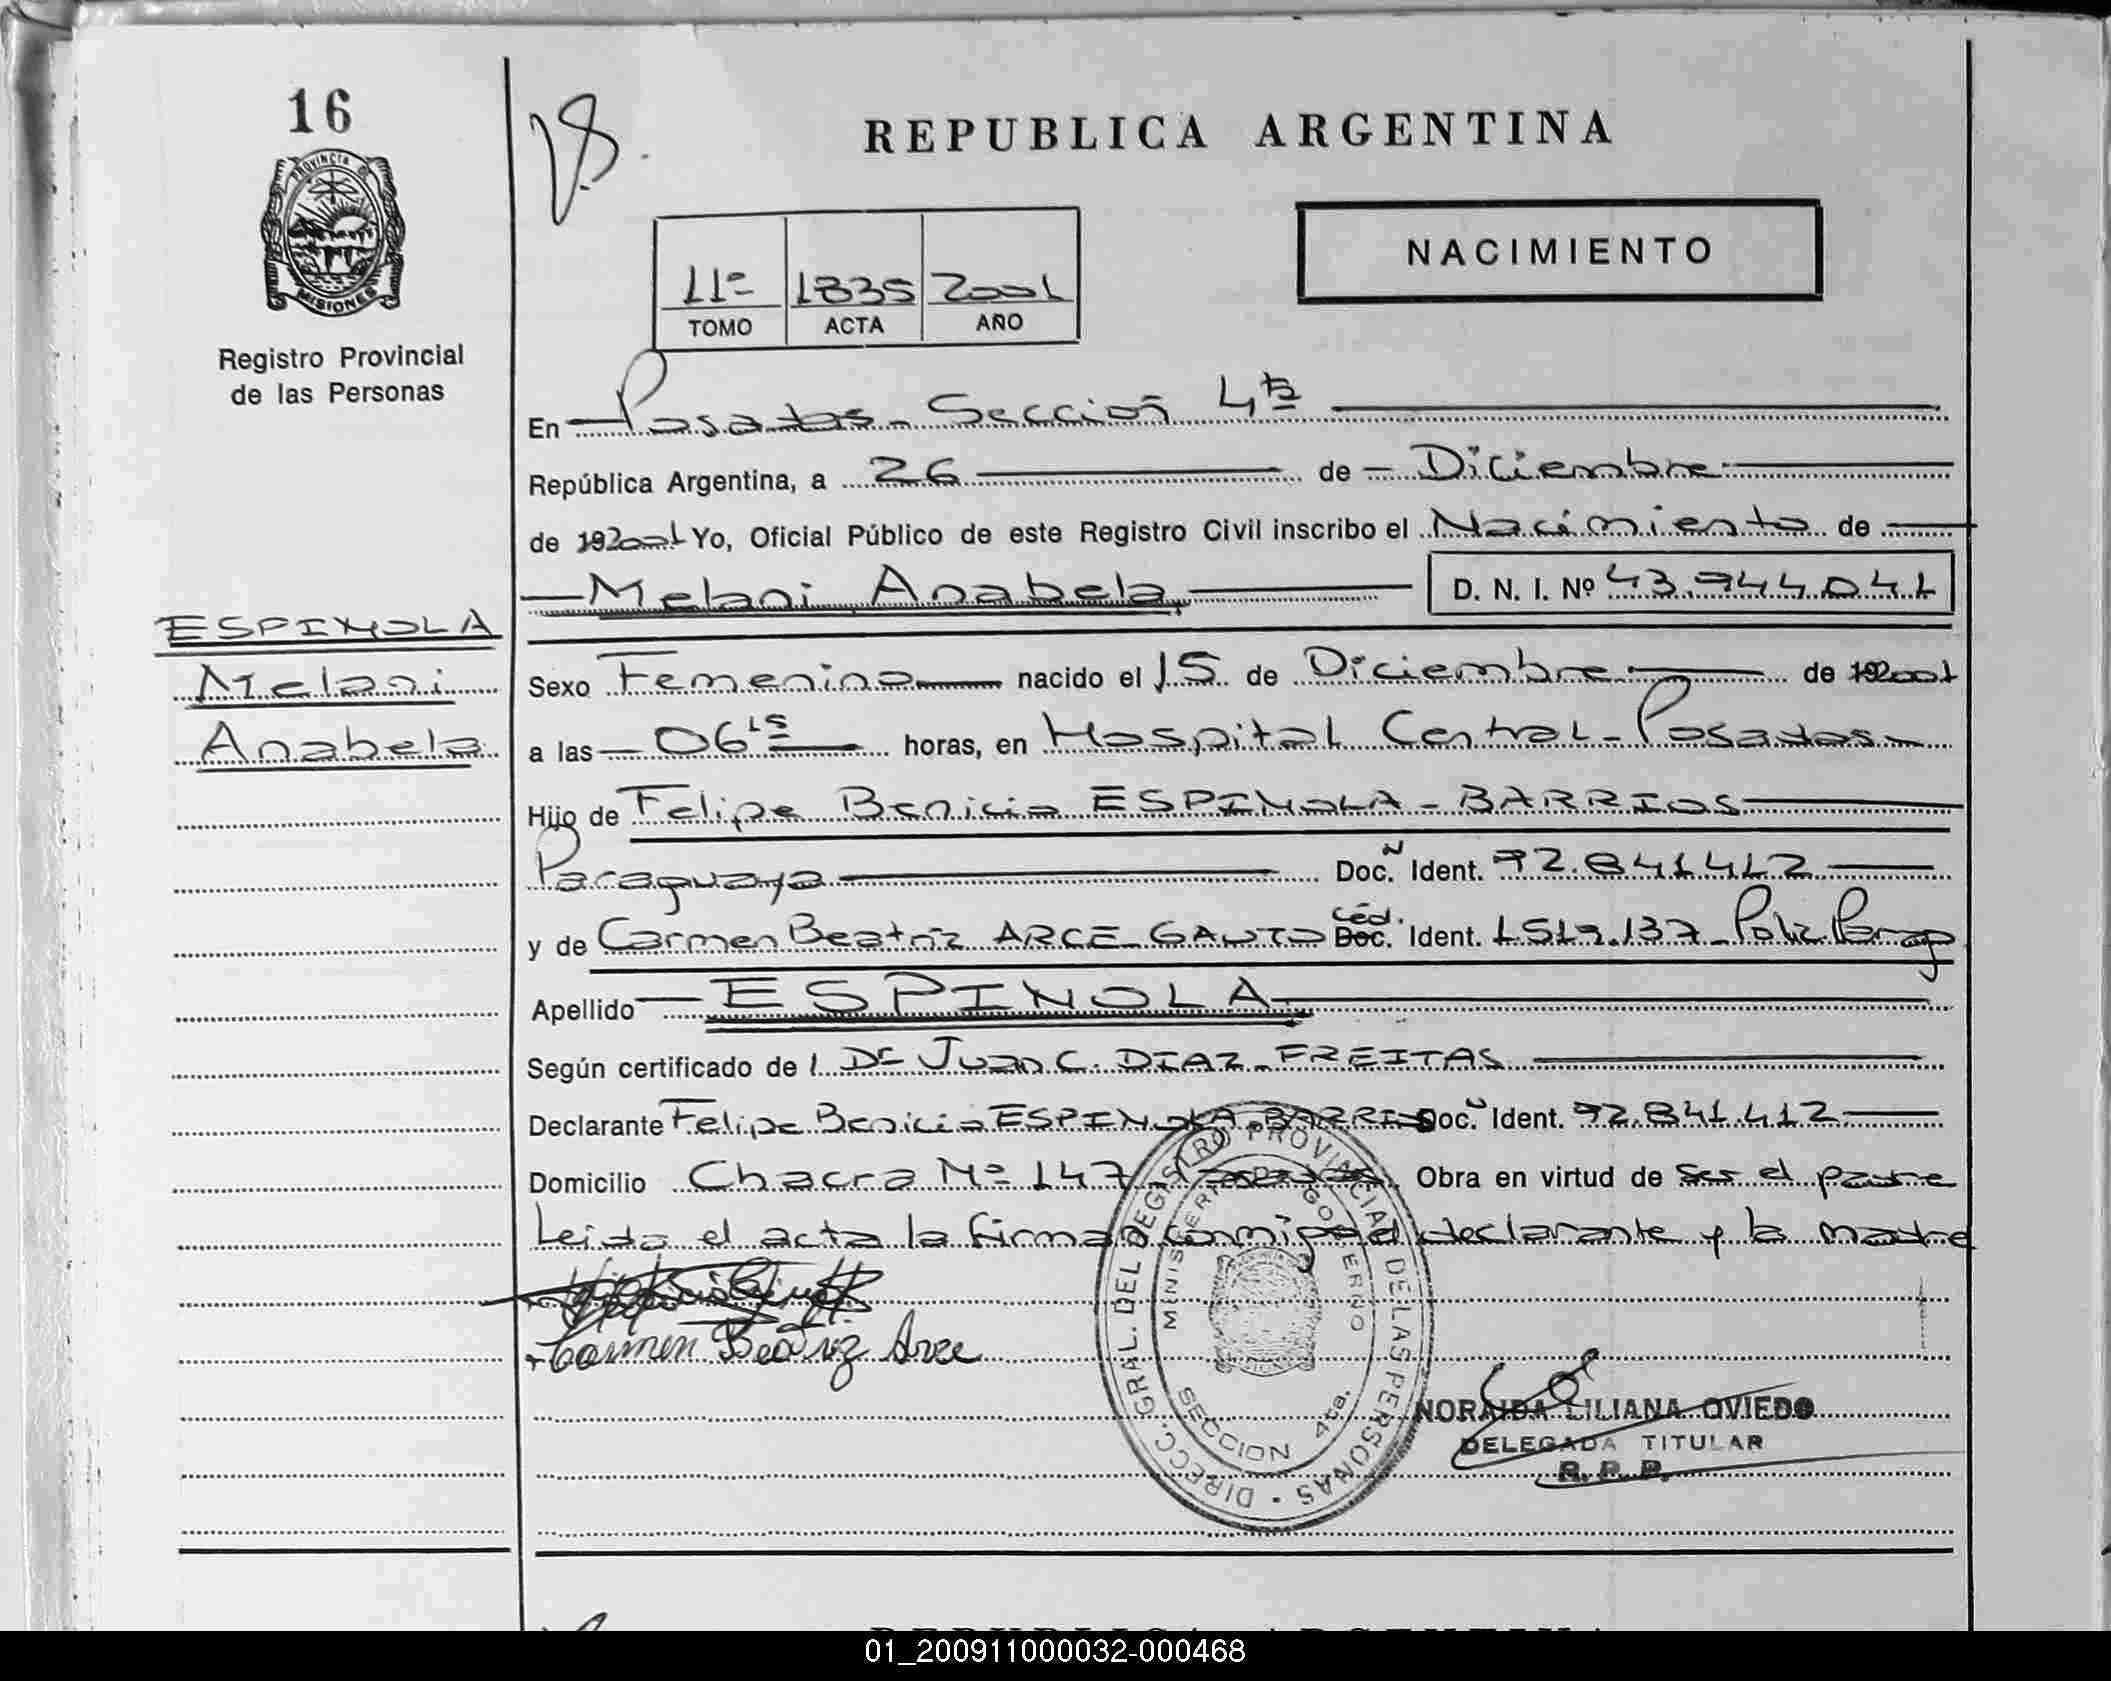 16
PROVINCIA DE
MISIONES
Registro Provincial
de las Personas
REPUBLICA ARGENTINA
NACIMIENTO
11º 1835 2001
TOMO ACTA AÑO
En Posadas - Sección 4ta
República Argentina, a 26 de Diciembre
de 192001 Yo, Oficial Público de este Registro Civil inscribo el Nacimiento de
Melani Anabela D. N. I. Nº 43.944.041
ESPINOLA
Melani
Anabela
Sexo Femenino nacido el 15 de Diciembre de 192001
a las 06 15 horas, en Hospital Central - Posadas -
Hijo de Felipe Benicio ESPINOLA - BARRIOS
Paraguaya Doc. N Ident. 92.841.412
y de Carmen Beatriz ARCE GAUTO Céd. Doc. Ident. 1.519.137 - Poliz. Parag
Apellido ESPINOLA
Según certificado de l Dr Juan C. DIAZ - FREITAS
Declarante Felipe Benicio ESPINOLA BARRIOS Doc. N Ident. 92.841.412
Domicilio Chacra Nº 147 - Posadas. Obra en virtud de ser el padre
Leida el acta la firma conmigo el declarante y la madre
Carmen Beatriz Arce
DIRECC. GRAL. DEL REGISTRO PROVINCIAL DE LAS PERSONAS
MINISTERIO DE GOBIERNO
SECCION 4ta.
NORAIDA LILIANA OVIEDO
DELEGADA TITULAR
R. P. P.
01_200911000032-000468